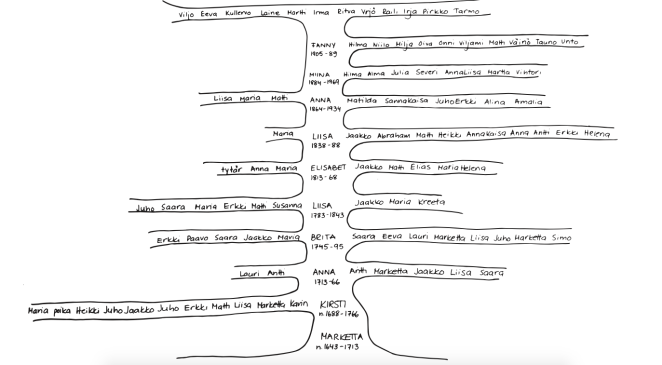 Viljo Eeva Kullervo Laine Martti Irma Ritva Yrjö Raili Irja Pirkko Tarmo
FANNY Hilma Niilo Hilja Oiva Onni Viljami Matti Väinö Tauno Unto
1905-89
MIINA Hilma Alma Julia Severi AnnaLiisa Martta Vihtori
1884-1969
Liisa Maria Matti ANNA Matilda Sannakaisa JuhoErkki Alina Amalia
1864-1934
Maria LIISA Jaakko Abraham Matti Heikki Annakaisa Anna Antti Erkki Helena
1838-88
tytär Anna Maria ELISABET Jaakko Matti Elias MariaHelena
1813-68
Juho Saara Maria Erkki Matti Susanna LIISA Jaakko Maria Kreeta
1783-1843
Erkki Paavo Saara Jaakko Maria BRITA Saara Eeva Lauri Marketta Liisa Juho Marketta Simo
1745-95
Lauri Antti ANNA Antti Marketta Jaakko Liisa Saara
1713-66
Maria poika Heikki Juho Jaakko Juho Erkki Matti Liisa Marketta Karin KIRSTI
n.1688-1766
MARKETTA
n.1643-1713